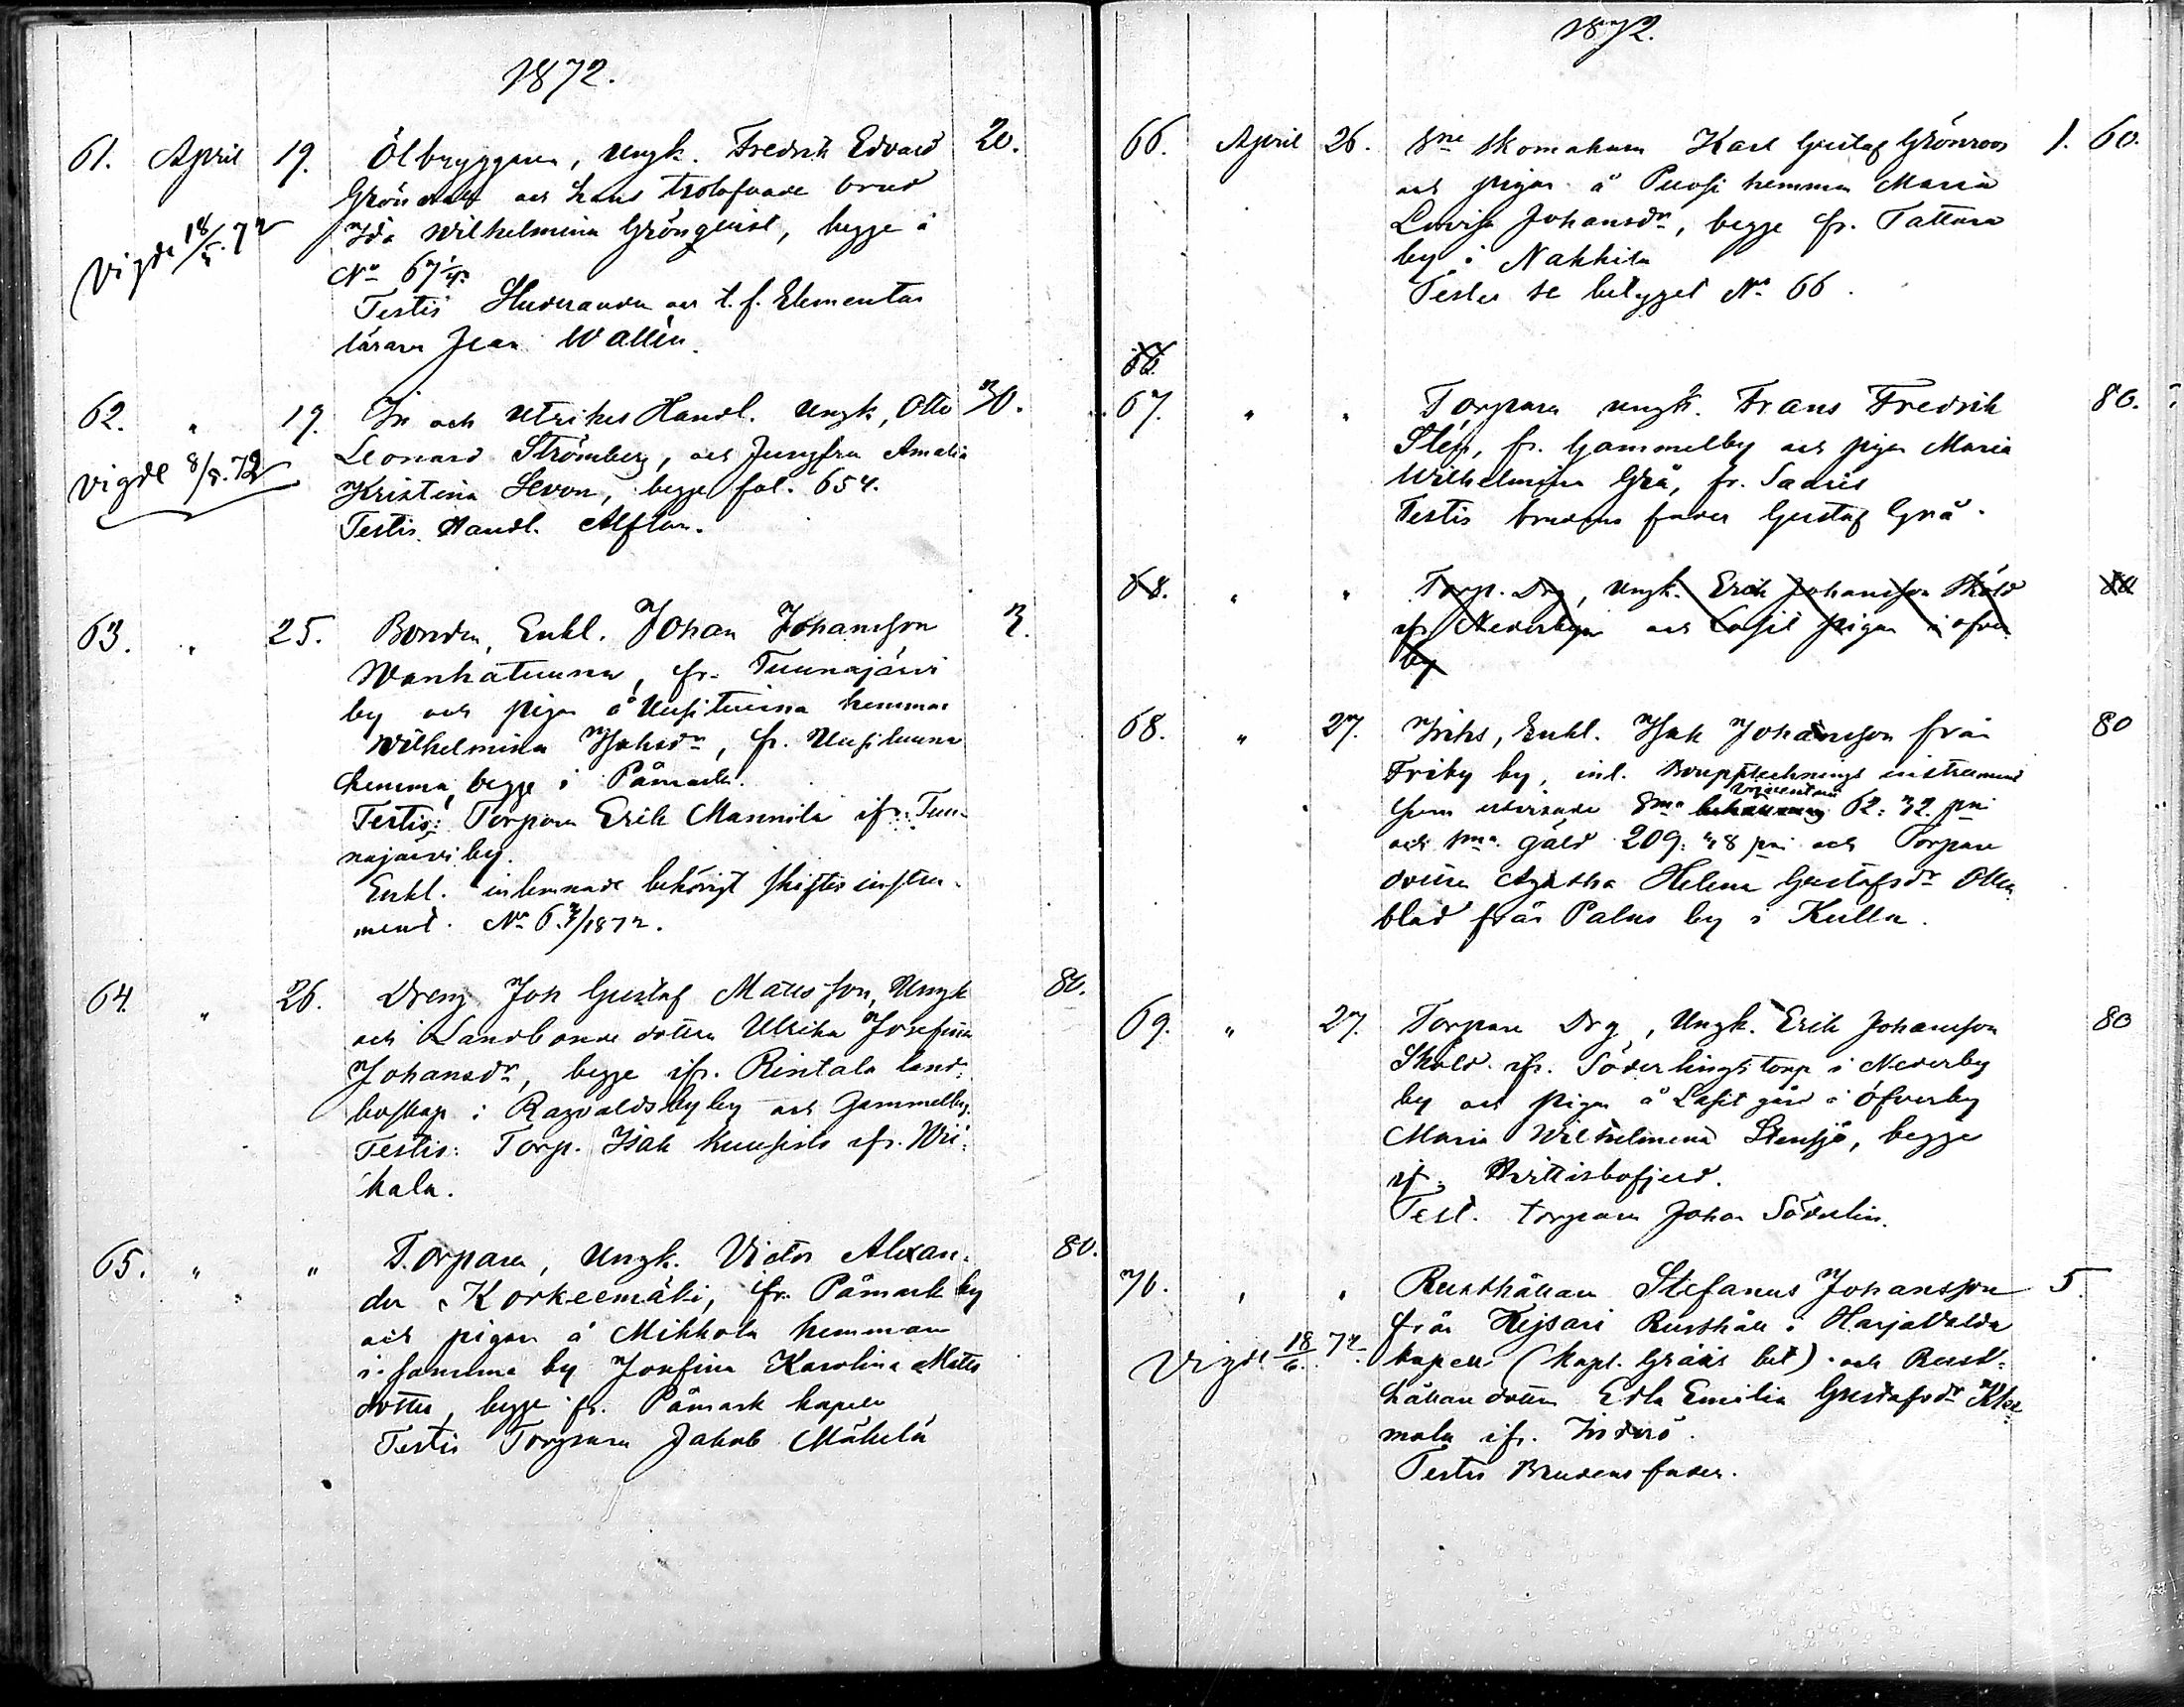 1872.
61. April 19. Ölbryggaren, Ungk. Fredrik Edvard 20.
Gröndahl och hans trolofvade brud
Vigde 18/5.72 Ida Wilhelmina Grönqvist, begge i
No 67
Testis Studeranden och t. f. Elementar
lärare Jean Wallén.
62. " 19. In och Utrikes Handl. Ungk, Otto 30.
vigde 8/5.72 Leonard Strömberg, och Jungfru Amalia
Kristina Levon, begge fol. 654.
Testis. Handl. Alftan.
63. " 25. Bonden, Enkl. Johan Johansson 3.
Wanhatuuna, fr. Tuunajärvi
by och pigan å Uusituuna hemman
Wilhelmina Isaksdr, fr. Uusituuna
hemma, begge i Påmark.
Testis: Torparen Erik Mannila ifr. Tuu-
najärvi by.
Enkl. inlemnade behörigt skiftes instru-
ment. No 63/1872.
64. " 26. Dreng Joh Gustaf Matsson, Ungk 80.
och Landbonde dottren Ulrika Josefina
Johansdr, begge ifr. Rintala land-
boskap i Ragvaldsby by och Gammelby.
Testis: Torp. Isak Kuusisto ifr. Wii-
kala.
65. " " Torparen, Ungk. Victor Alexan- 80.
der Korkeemäki, ifr. Påmark by
och pigan å Mikkola hemman
i samma by Josefina Karolina Matts
dotter, begge fr. Påmark kapell
Testis Torparen Jakob Mäkelä
1872.
66. April 26. Sne skomakaren Karl Gustaf Grönroos 1. 60.
och pigan å Puosi hemman Maria
Lovisa Johansdr, begge fr. Tattara
by i Nakkila
Testes se betyget No 66.
66.
67. " " Torparen ungk. Frans Fredrik 80.
Sten, fr. Gammelby och pigan Maria
Wilhelmina Grå, fr. Saaris
Testis brudens fader Gustaf Grå.
68. " " Torp. Drg, Ungk. Erik Johansson Sköld 80
ifr Nederbyn och Lassil pigan i Öfver
by
68. " 27. Inhs, Enkl. Isak Johansson från 80
Friby by, inl. Boupptecknings instrument
som utvisade Sma 62: 32. pni
och sma gäld 209: 48 pni och Torpare
dottren Agatha Helena Gustafsdr Ollon
blad från Palus by i Kulla.
69. " 27. Torpare Drg, Ungk. Erik Johansson 80
Sköld ifr. Söderlings torp i Nederby
by och pigan å Lassil gård i Öfverby
Maria Wilhelmina Stensjö, begge
ifr. Hvittisbofjerd.
Test. torparen Johan Söderlin.
70. " " Rusthållaren Stefanus Johansson 5.
från Kejsari Rusthåll i Harjavalda
Vigde 18/6. 72. kapell (Kapl. Grääs bet) och Rust-
hållare dottren Edla Emilia Gustafsdr
mala ifr. Inderö.
Testes Brudens fader.